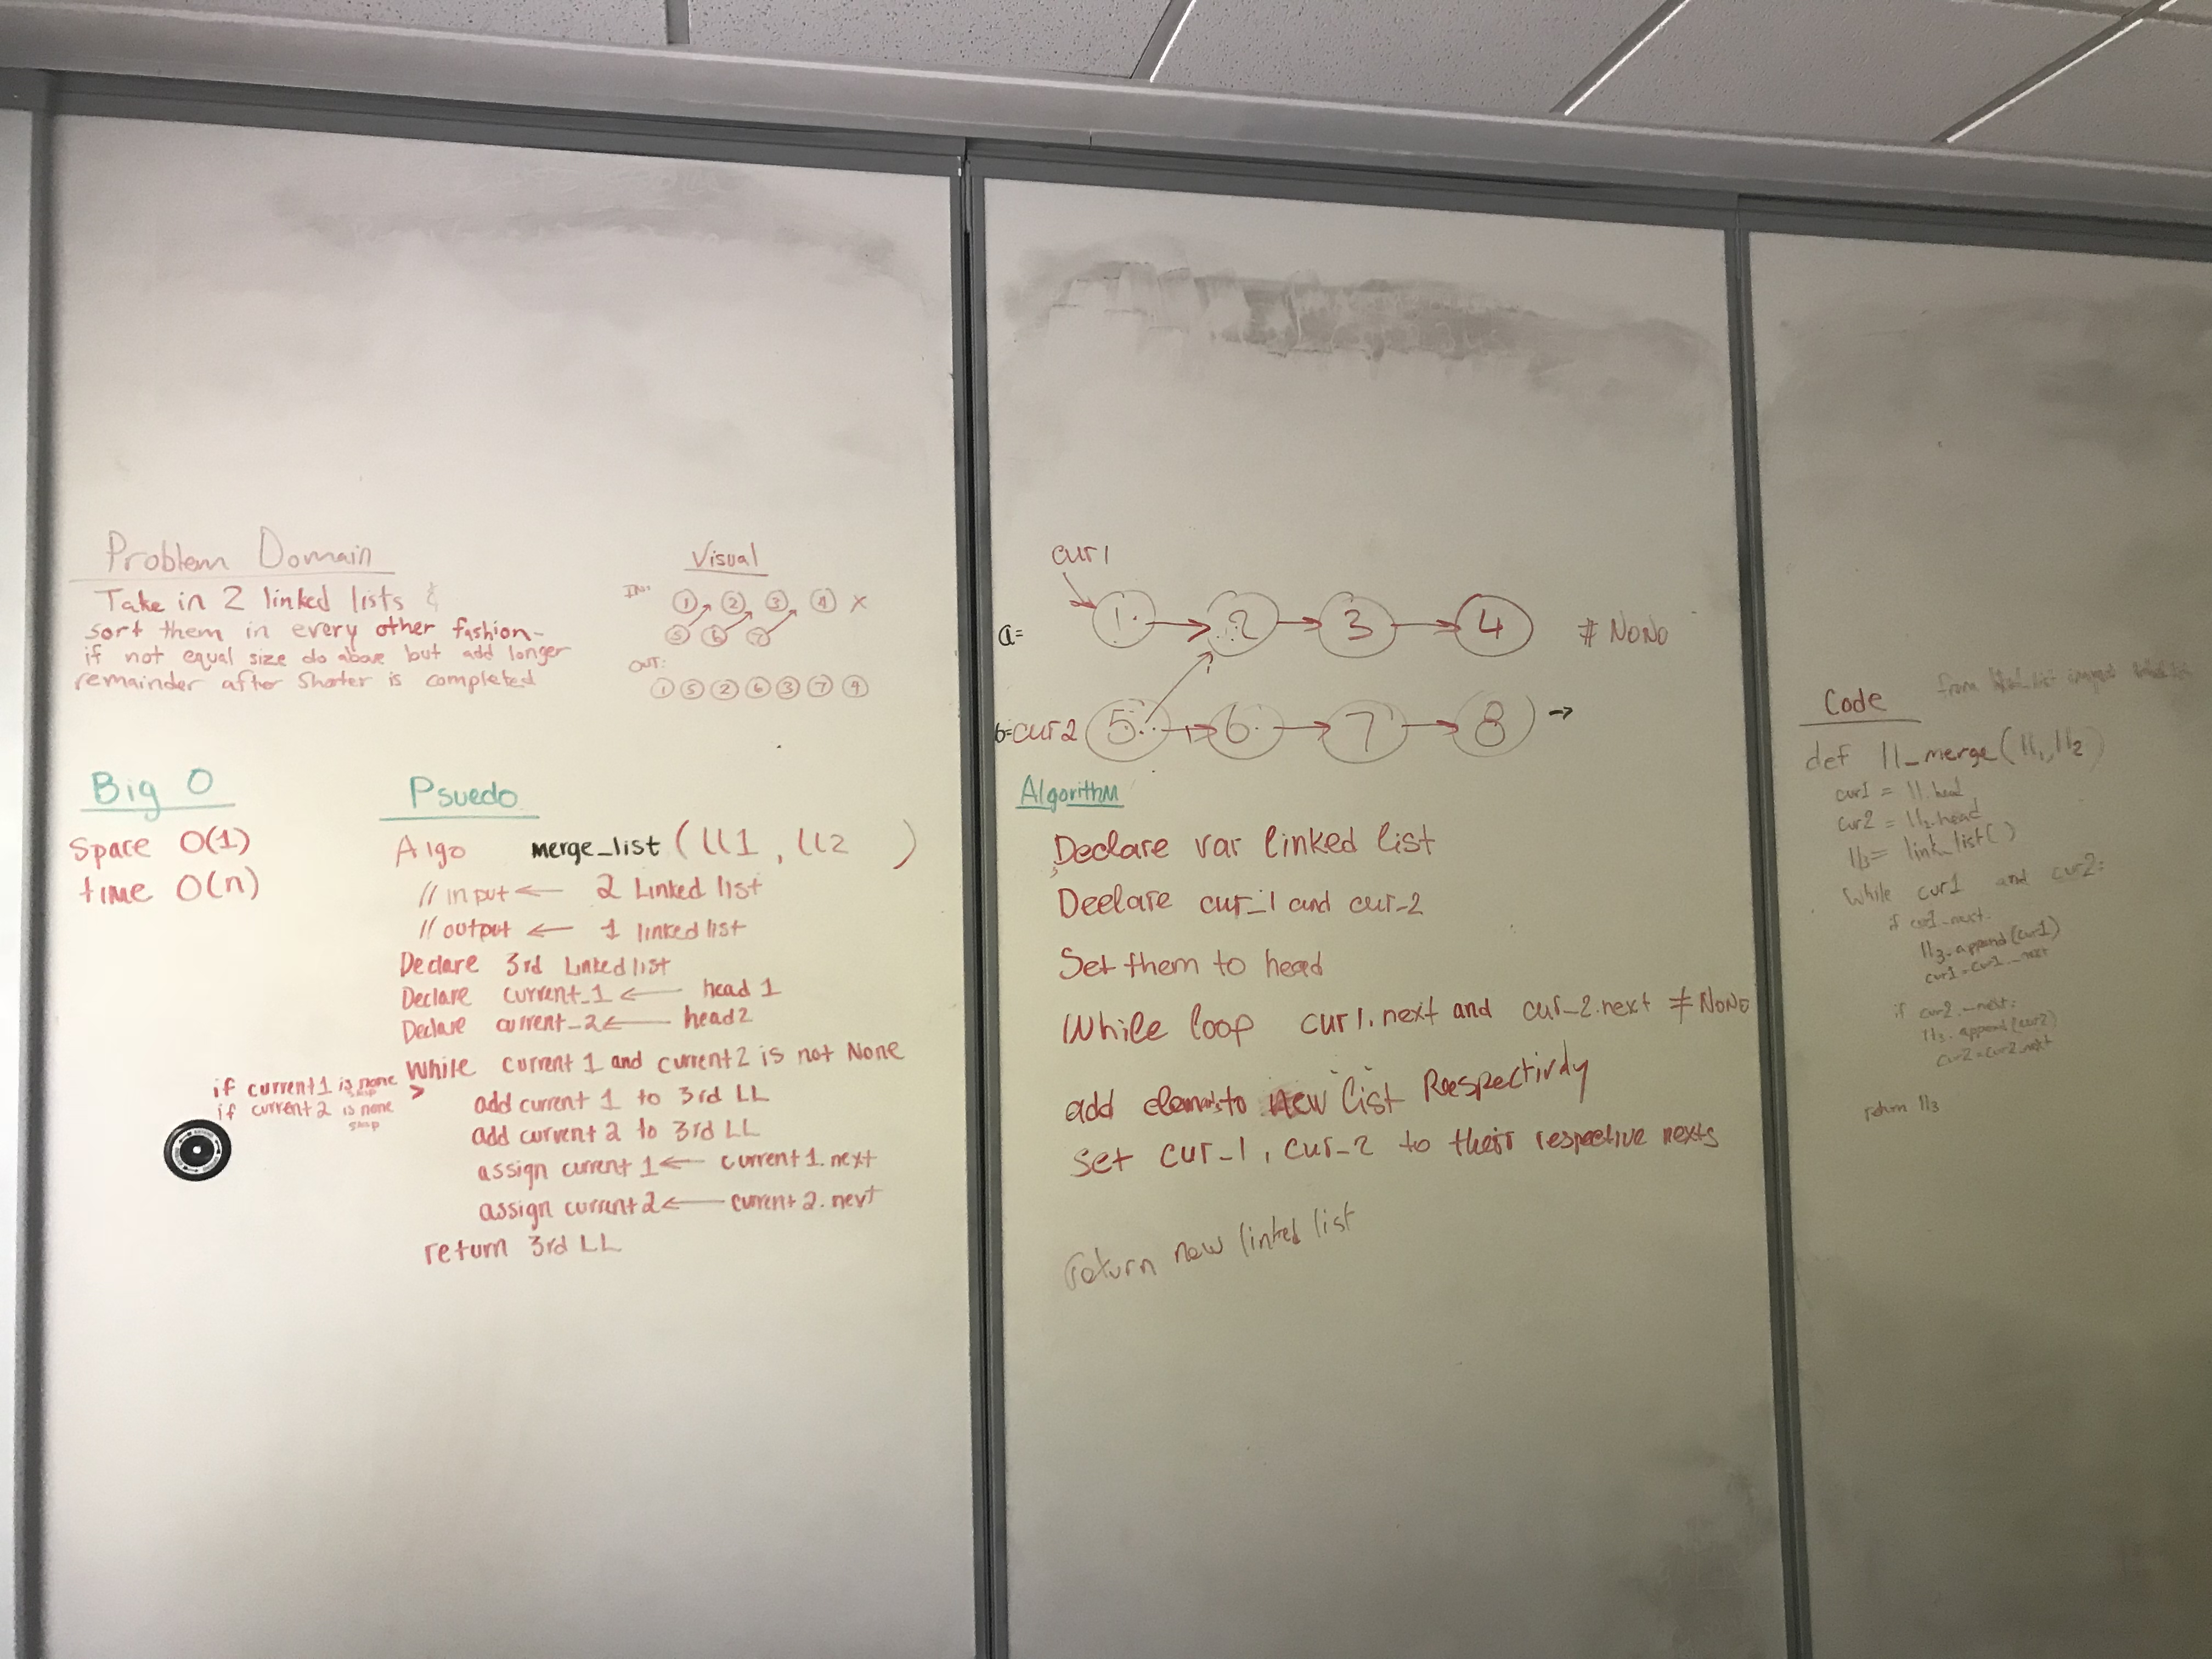 Problem Domain
Take in 2 linked lists &
sort them in every other fashion-
if not equal size do above but add longer
remainder after shorter is completed
Visual
IN:
1 2 3 4 X
5 6 7
OUT:
1 5 2 6 3 7 4
Big O
Space O(1)
time O(n)
Psuedo
Algo merge_list (LL1, LL2 )
// input ← 2 Linked list
// output ← 1 linked list
Declare 3rd Linked list
Declare current_1 ← head 1
Declare current_2 ← head 2
While current 1 and current 2 is not None
if current 1 is none skip
if current 2 is none skip
>
add current 1 to 3rd LL
add current 2 to 3rd LL
assign current 1 ← current 1.next
assign current 2 ← current 2.next
return 3rd LL
cur 1
a= 1 → 2 → 3 → 4 ≠ NONO
b= cur 2 5 → 6 → 7 → 8 →
Algorithm
Declare var linked list
Declare cur_1 and cur_2
Set them to head
While loop cur 1.next and cur_2.next ≠ NONO
add elements to new list Respectivly
Set cur_1, cur_2 to their respective nexts
return new linked list
Code
from import
def ll_merge(ll1, ll2)
cur1 = ll.head
cur2 = ll2.head
ll3 = link_list()
While cur1 and cur2:
if cur1._next.
ll3.append(cur1)
cur1 = cur1._next
if cur2._next:
ll3.append(cur2)
cur2 = cur2.next
return ll3